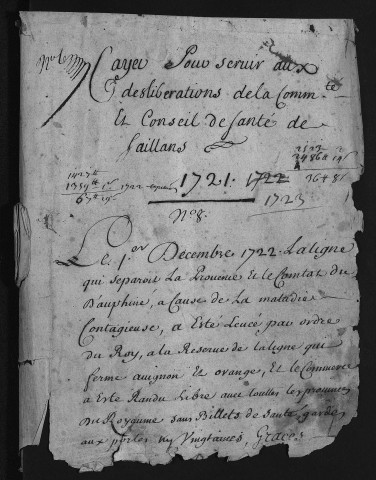 Cayer Pour servir aux
desliberations de la Comm.te
Et Conseil de santé de
saillans
1721. 1722
1723
N.o 8.
Le 1.er Decembre 1722. La ligne
qui separoit La Provence Et le Comtat du
Dauphiné, a Cause de La maladie
Contagieuse, a Esté Leuée par ordre
du Roy, a la Reserue de la ligne qui
ferme auignon Et orange, Et le Commerce
a Esté Randu Libre auec touttes les prouinces
du Royaume sans Billets de santé gardes
aux portes ny Vingtaines, Graces